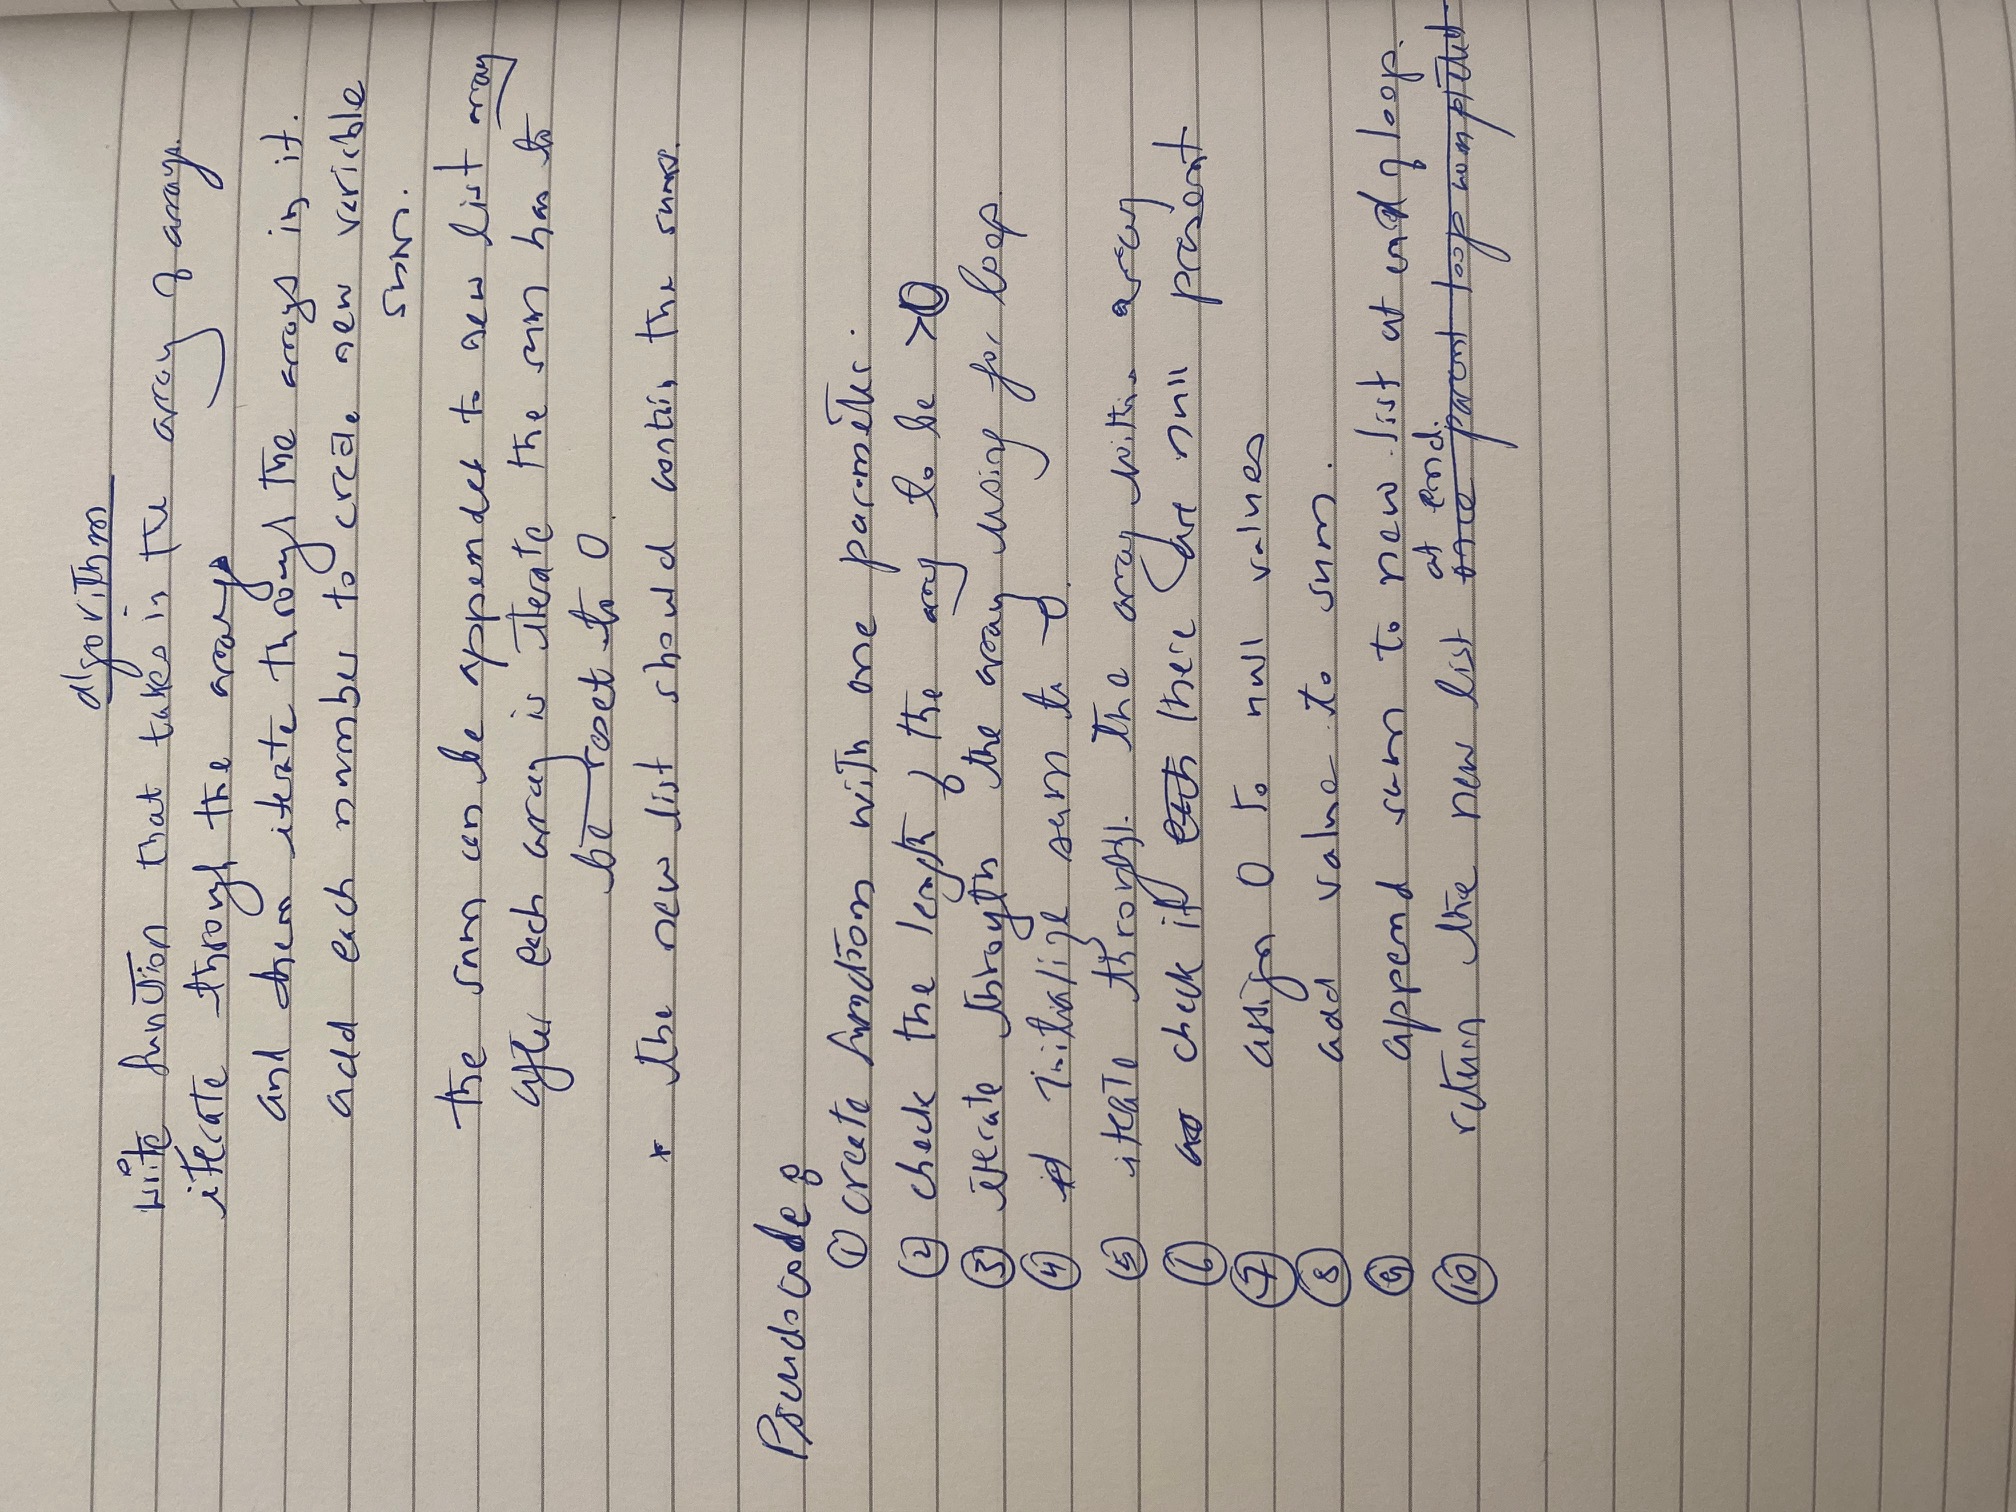 algorithm
write function that takes in the array of arrays.
iterate through the arrays
and then iterate through the arrays in it.
add each number to create new varicble
sum.
the sum can be appended to new list array
after each array is iterate the sum has to
be reset to 0.
* the new list should contain the sums.
Pseudocode:
① create function with one parameter.
② check the length of the array to be >0
③ iterate throygth the array using for loop.
④ initialize sum to 0.
⑤ iterate through the array within array
⑥ check if each there are null present
⑦ assign 0 to null values
⑧ add value to sum.
⑨ append sum to new list at end of loop.
at end.
⑩ return the new list once parent loop completed